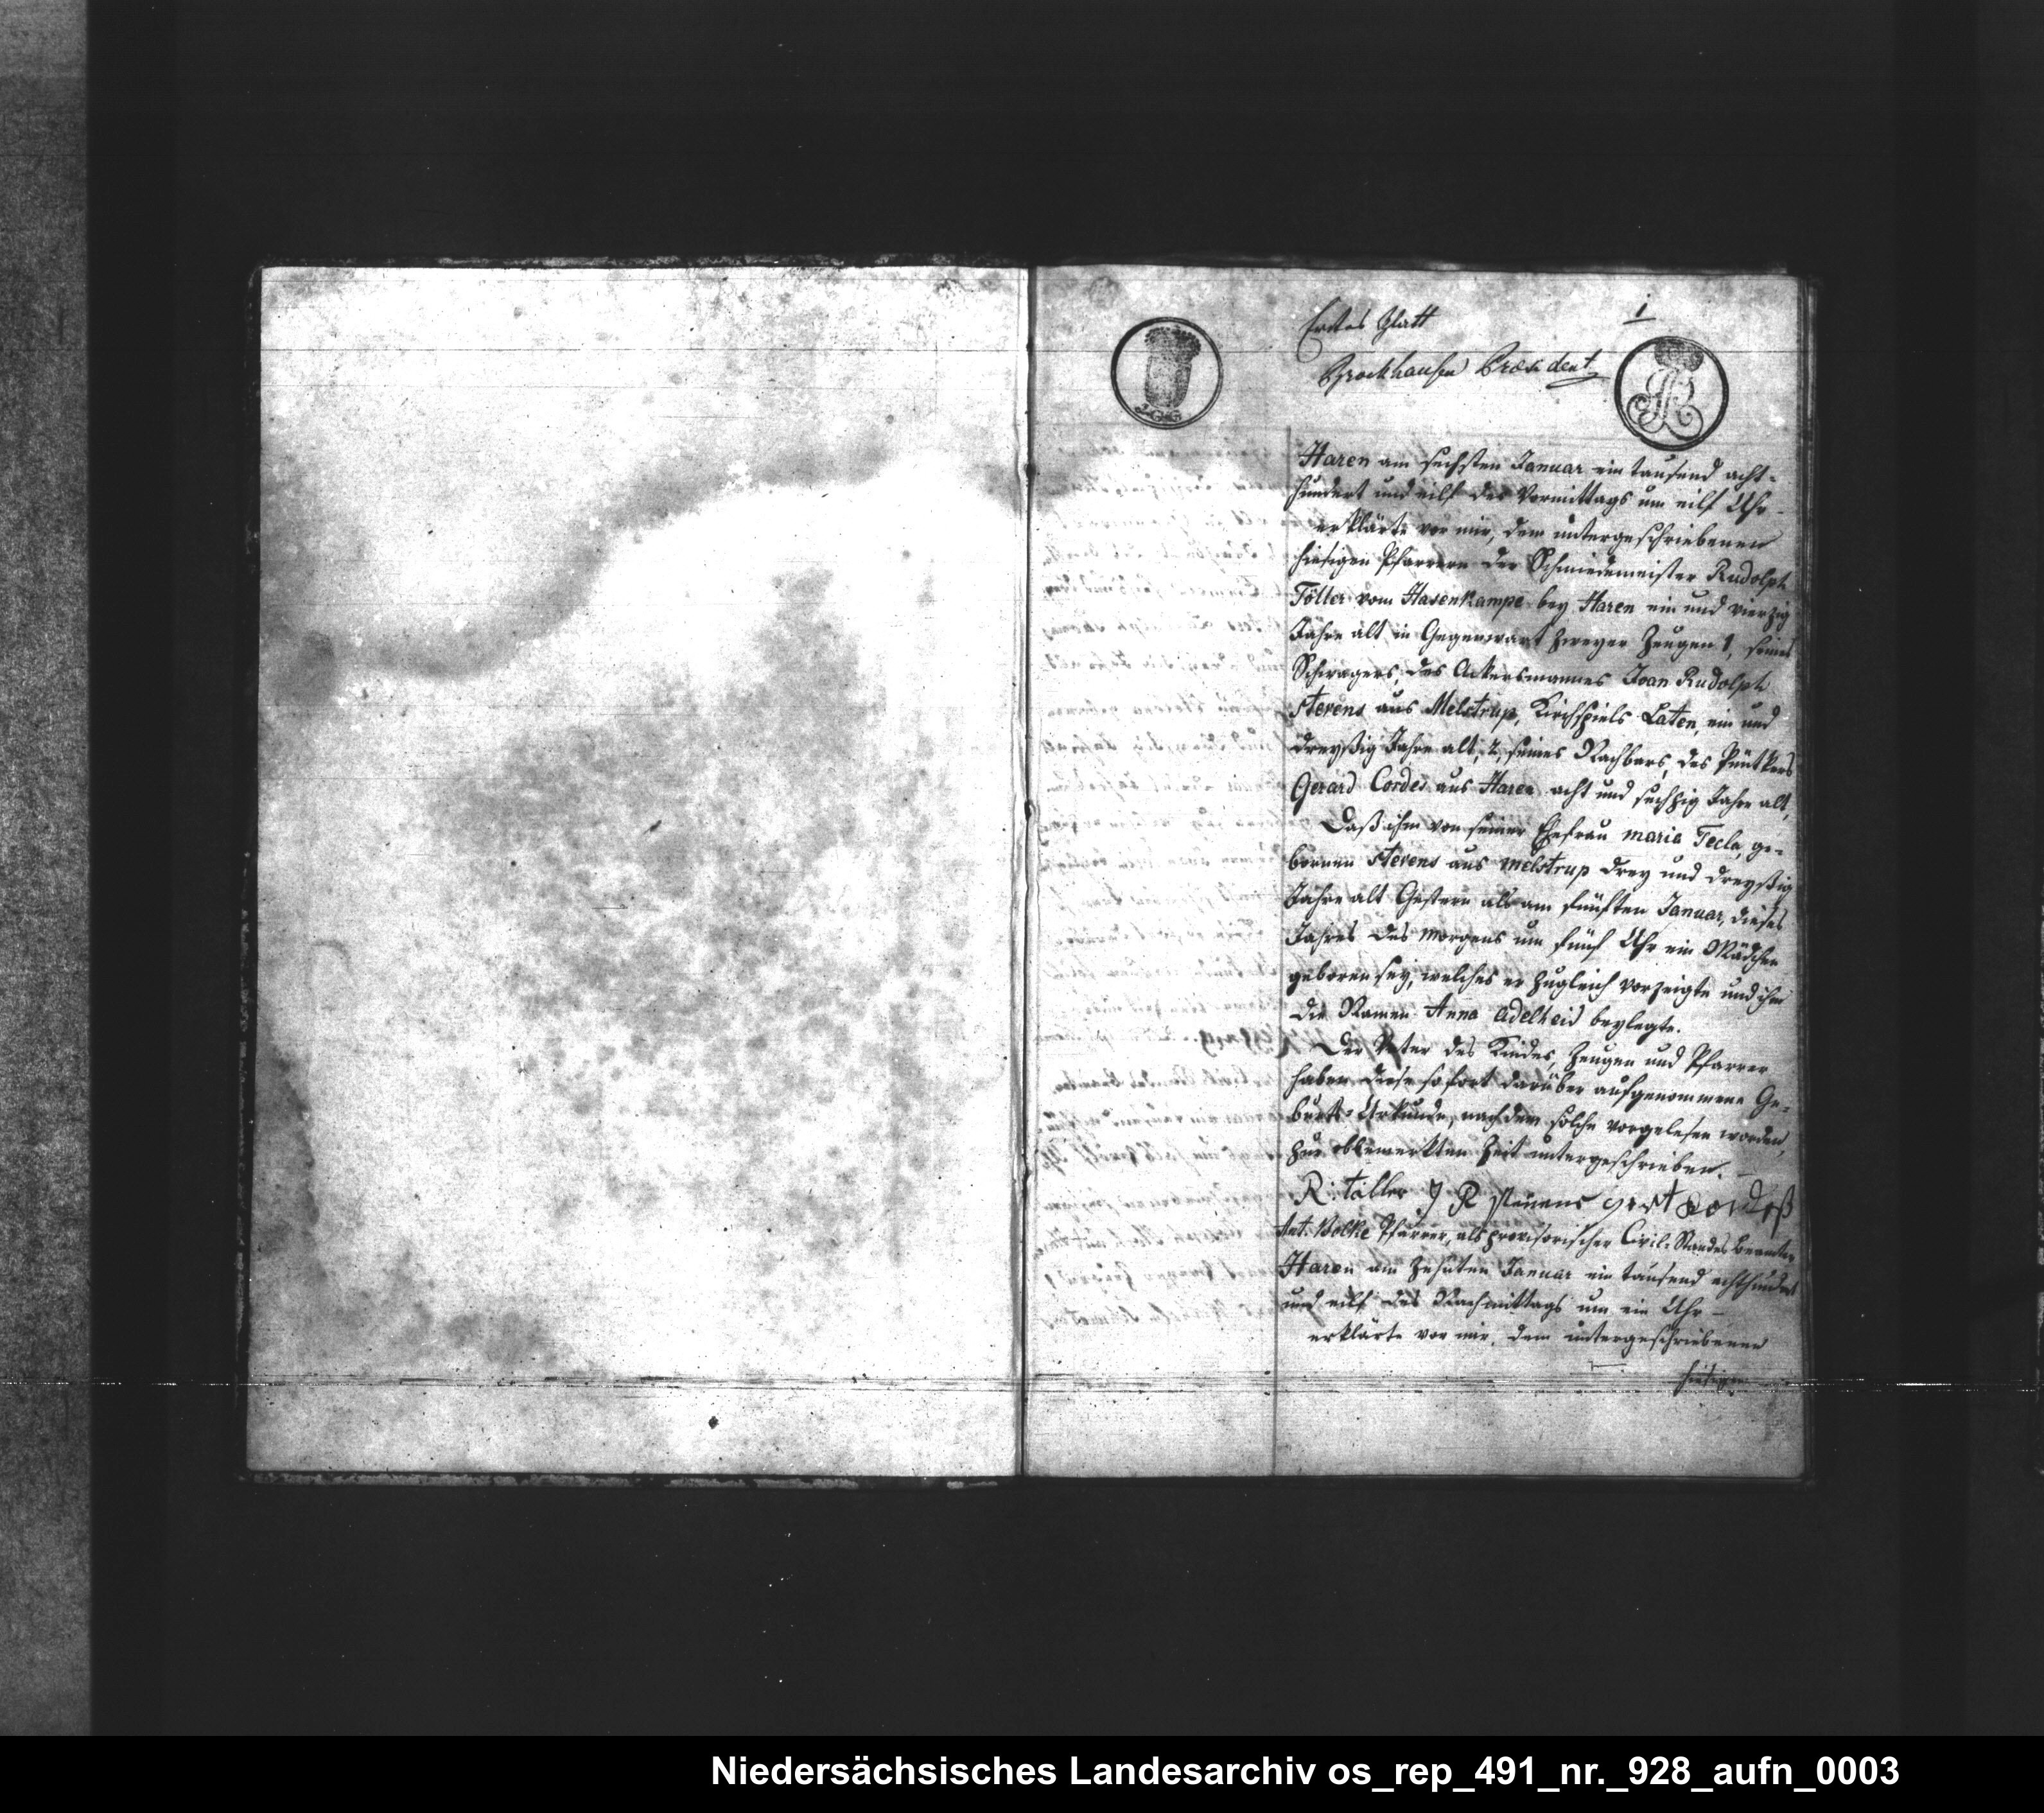 1
Erstes Blatt
Brockhausen Præsident
Haren am sechsten Januar ein tausend acht-
hundert und eilf des Vormittags um eilf Uhr -
erklärte vor mir, dem untergeschriebenen
hiesigen Pfarrern der Schmiedemeister Rudolph
Töller vom Hasenkampe bey Haren ein und vierzig
Jahre alt in Gegenwart zweyer Zeugen 1, seines
Schwagers, des Ackersmannes Joan Rudolph
Stevens aus Melstrup, Kirchspiels Laten, ein und
dreyßig Jahre alt, 2, seines Nachbars, des Püntkers
Gerard Cordes aus Haren acht und sechzig Jahre alt,
Daß ihm von seiner Ehefrau Maria Tecla, ge-
bornen Stevens aus Melstrup drey und dreyßig
Jahre alt Gestern als am fünften Januar, dieses
Jahres des Morgens um fünf Uhr ein Mädchen
geboren sey, welches er zugleich vorzeigte und ihm
die Namen Anna Adelheid beylegte.
Der Vater des Kindes, Zeugen und Pfarrer
haben diese sofort darüber aufgenommene Ge-
burts-Urkunde, nachdem solche vorgelesen worden,
zur obbemerkten Zeit untergeschrieben. -
R: töller J R stevens gert kordeß
Ant. Bölke Pfarrer, als provisorischer Civil-Standes beamter
Haren am zehnten Januar ein tausend achthundert
und eilf des Nachmittags um ein Uhr -
erklärte vor mir, dem untergeschriebenen
hiesigen
Niedersächsisches Landesarchiv os_rep_491_nr._928_aufn_0003